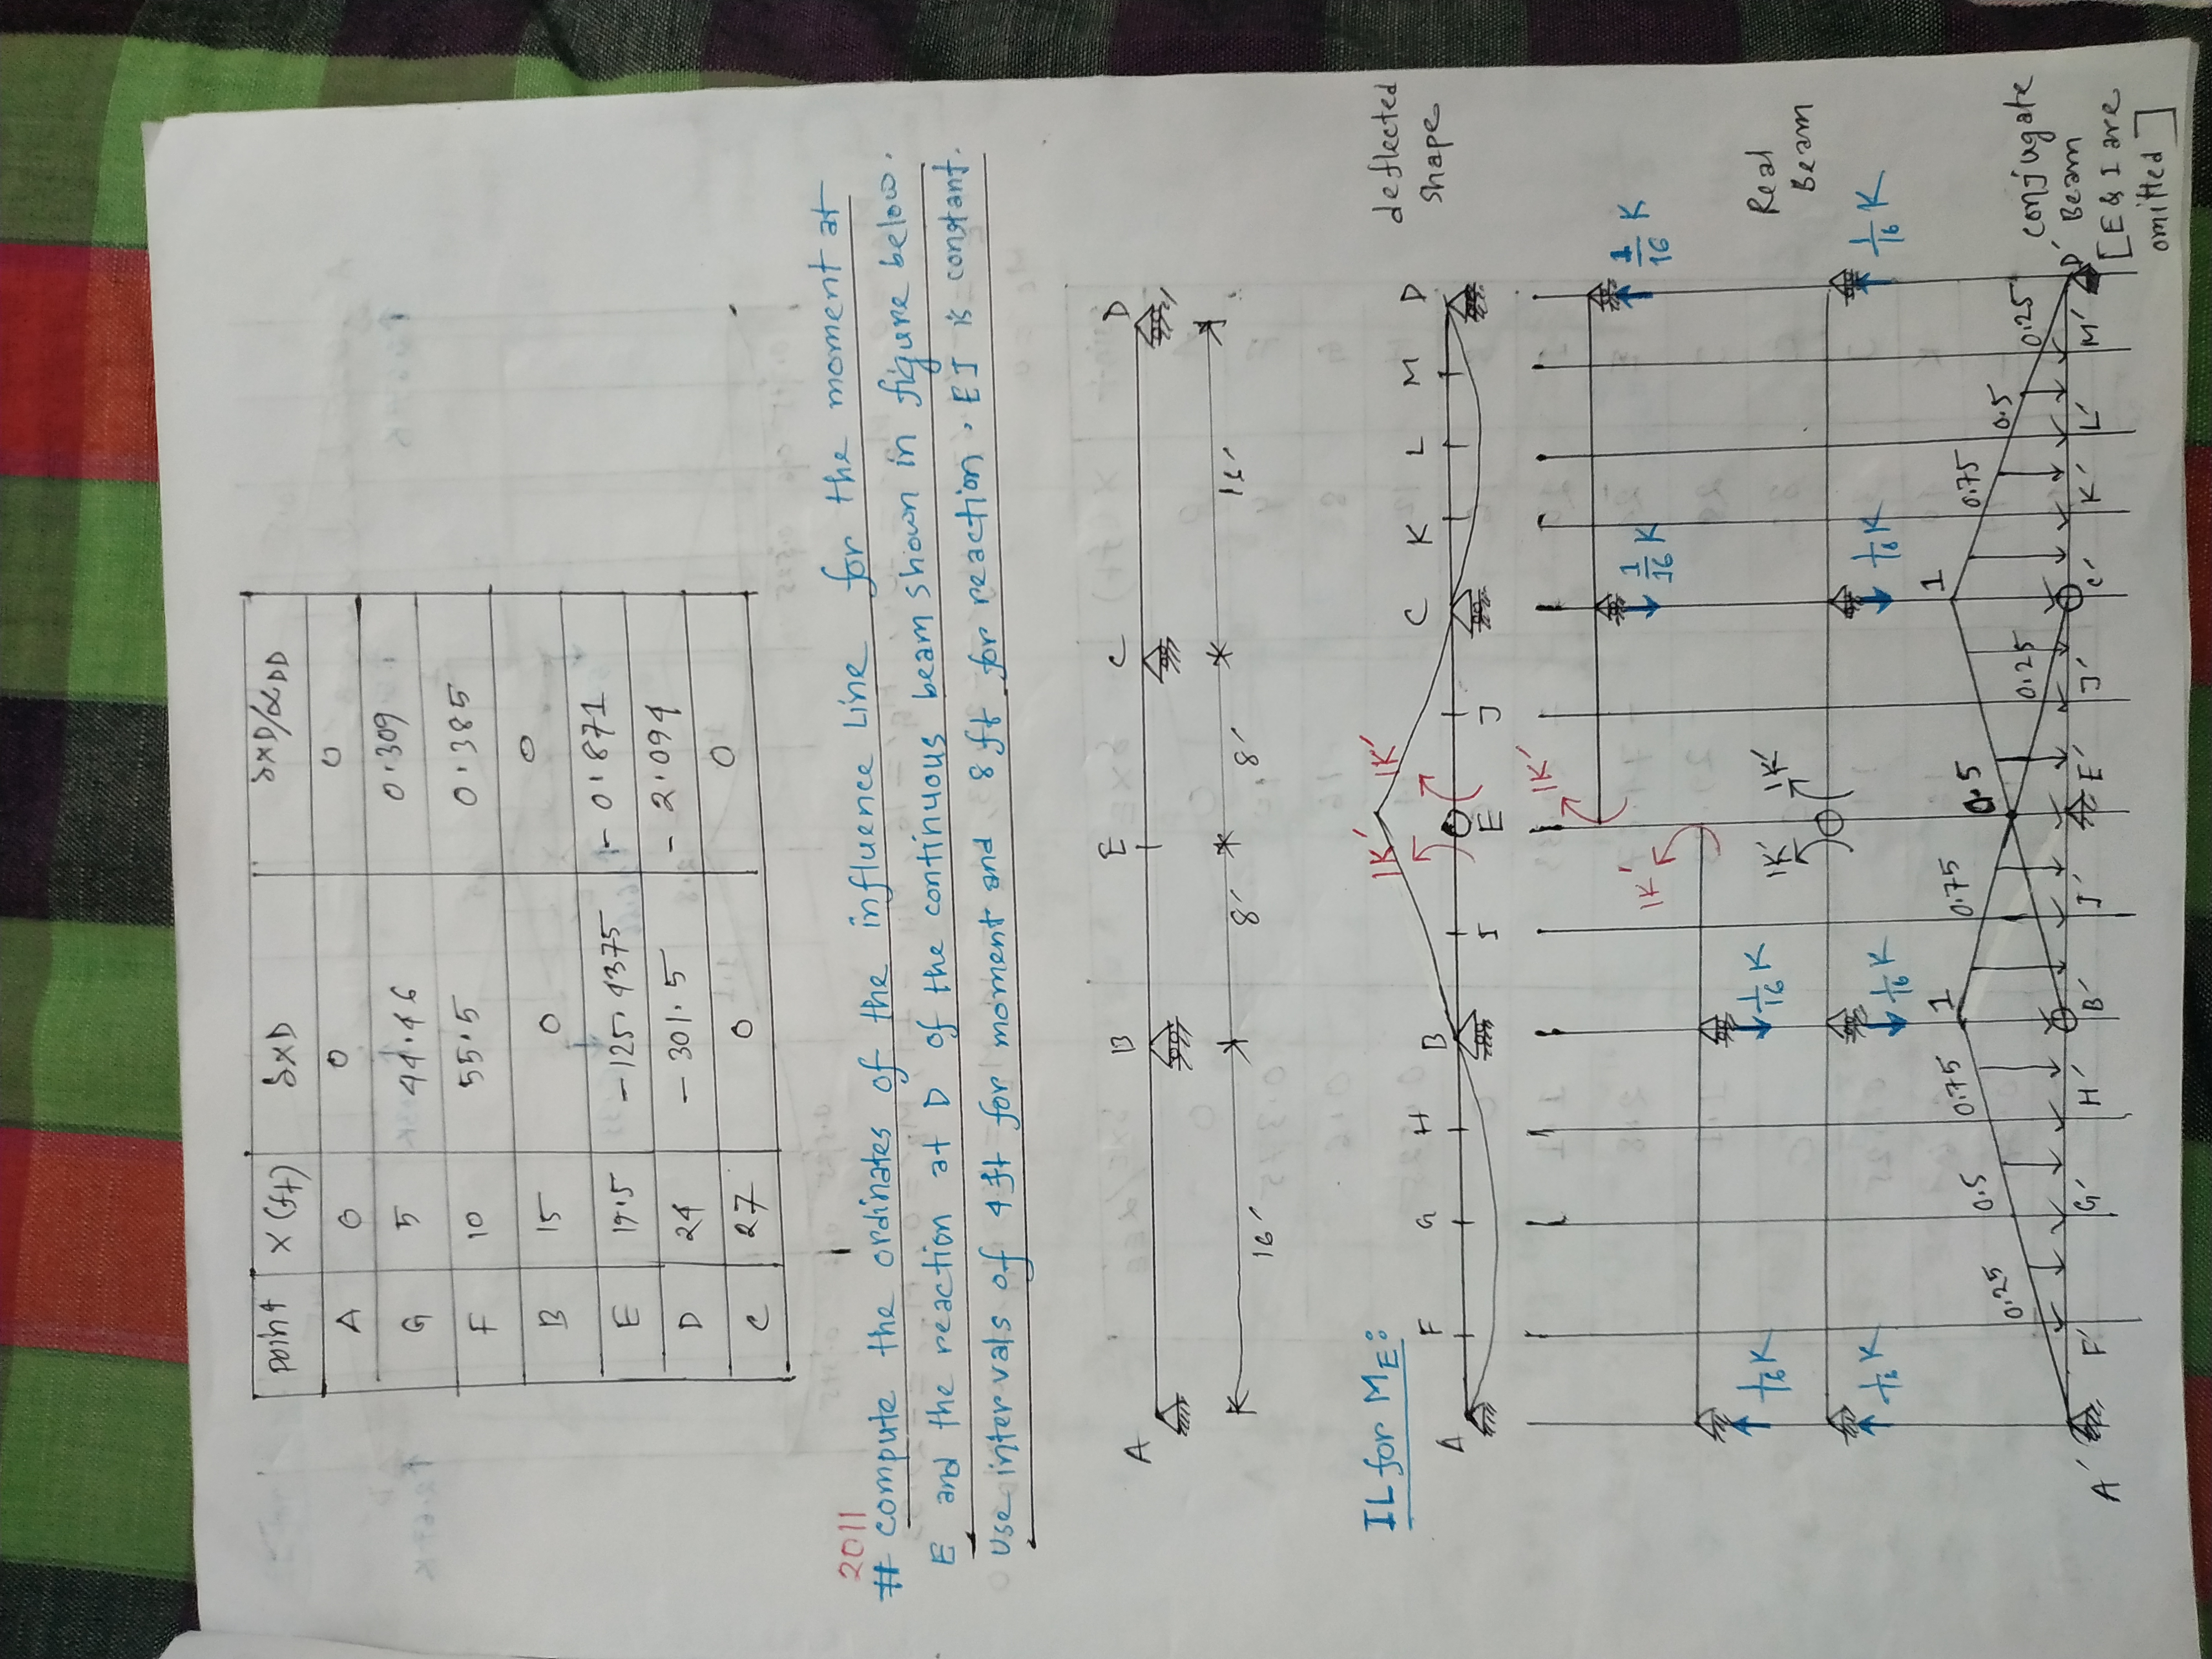 point X(ft) δXD δXD/αDD
A 0 0 0
G 5 44.46 0.309
F 10 55.5 0.385
B 15 0 0
E 19.5 -125.4375 -0.871
D 24 -301.5 -2.094
C 27 0 0
2011
# compute the ordinates of the influence Line for the moment at
E and the reaction at D of the continuous beam shown in figure below.
Use intervals of 4ft for moment and 8 ft for reaction. EI is constant.
A B E C D
16' 8' 8' 16'
IL for ME:
deflected
shape
1K' 1K'
A F G H B I E J C K L M D
1K' 1/16 K 1/16 K
1K'
1/16 K 1/16 K
Real
Beam
1K' 1K'
1/16 K 1/16 K 1/16 K 1/16 K
0.25 0.5 0.75 1 0.75 0.5 0.25 1 0.75 0.5 0.25
A' F' G' H' B' I' E' J' C' K' L' M' D'
conjugate
Beam
[E & I are
omitted]